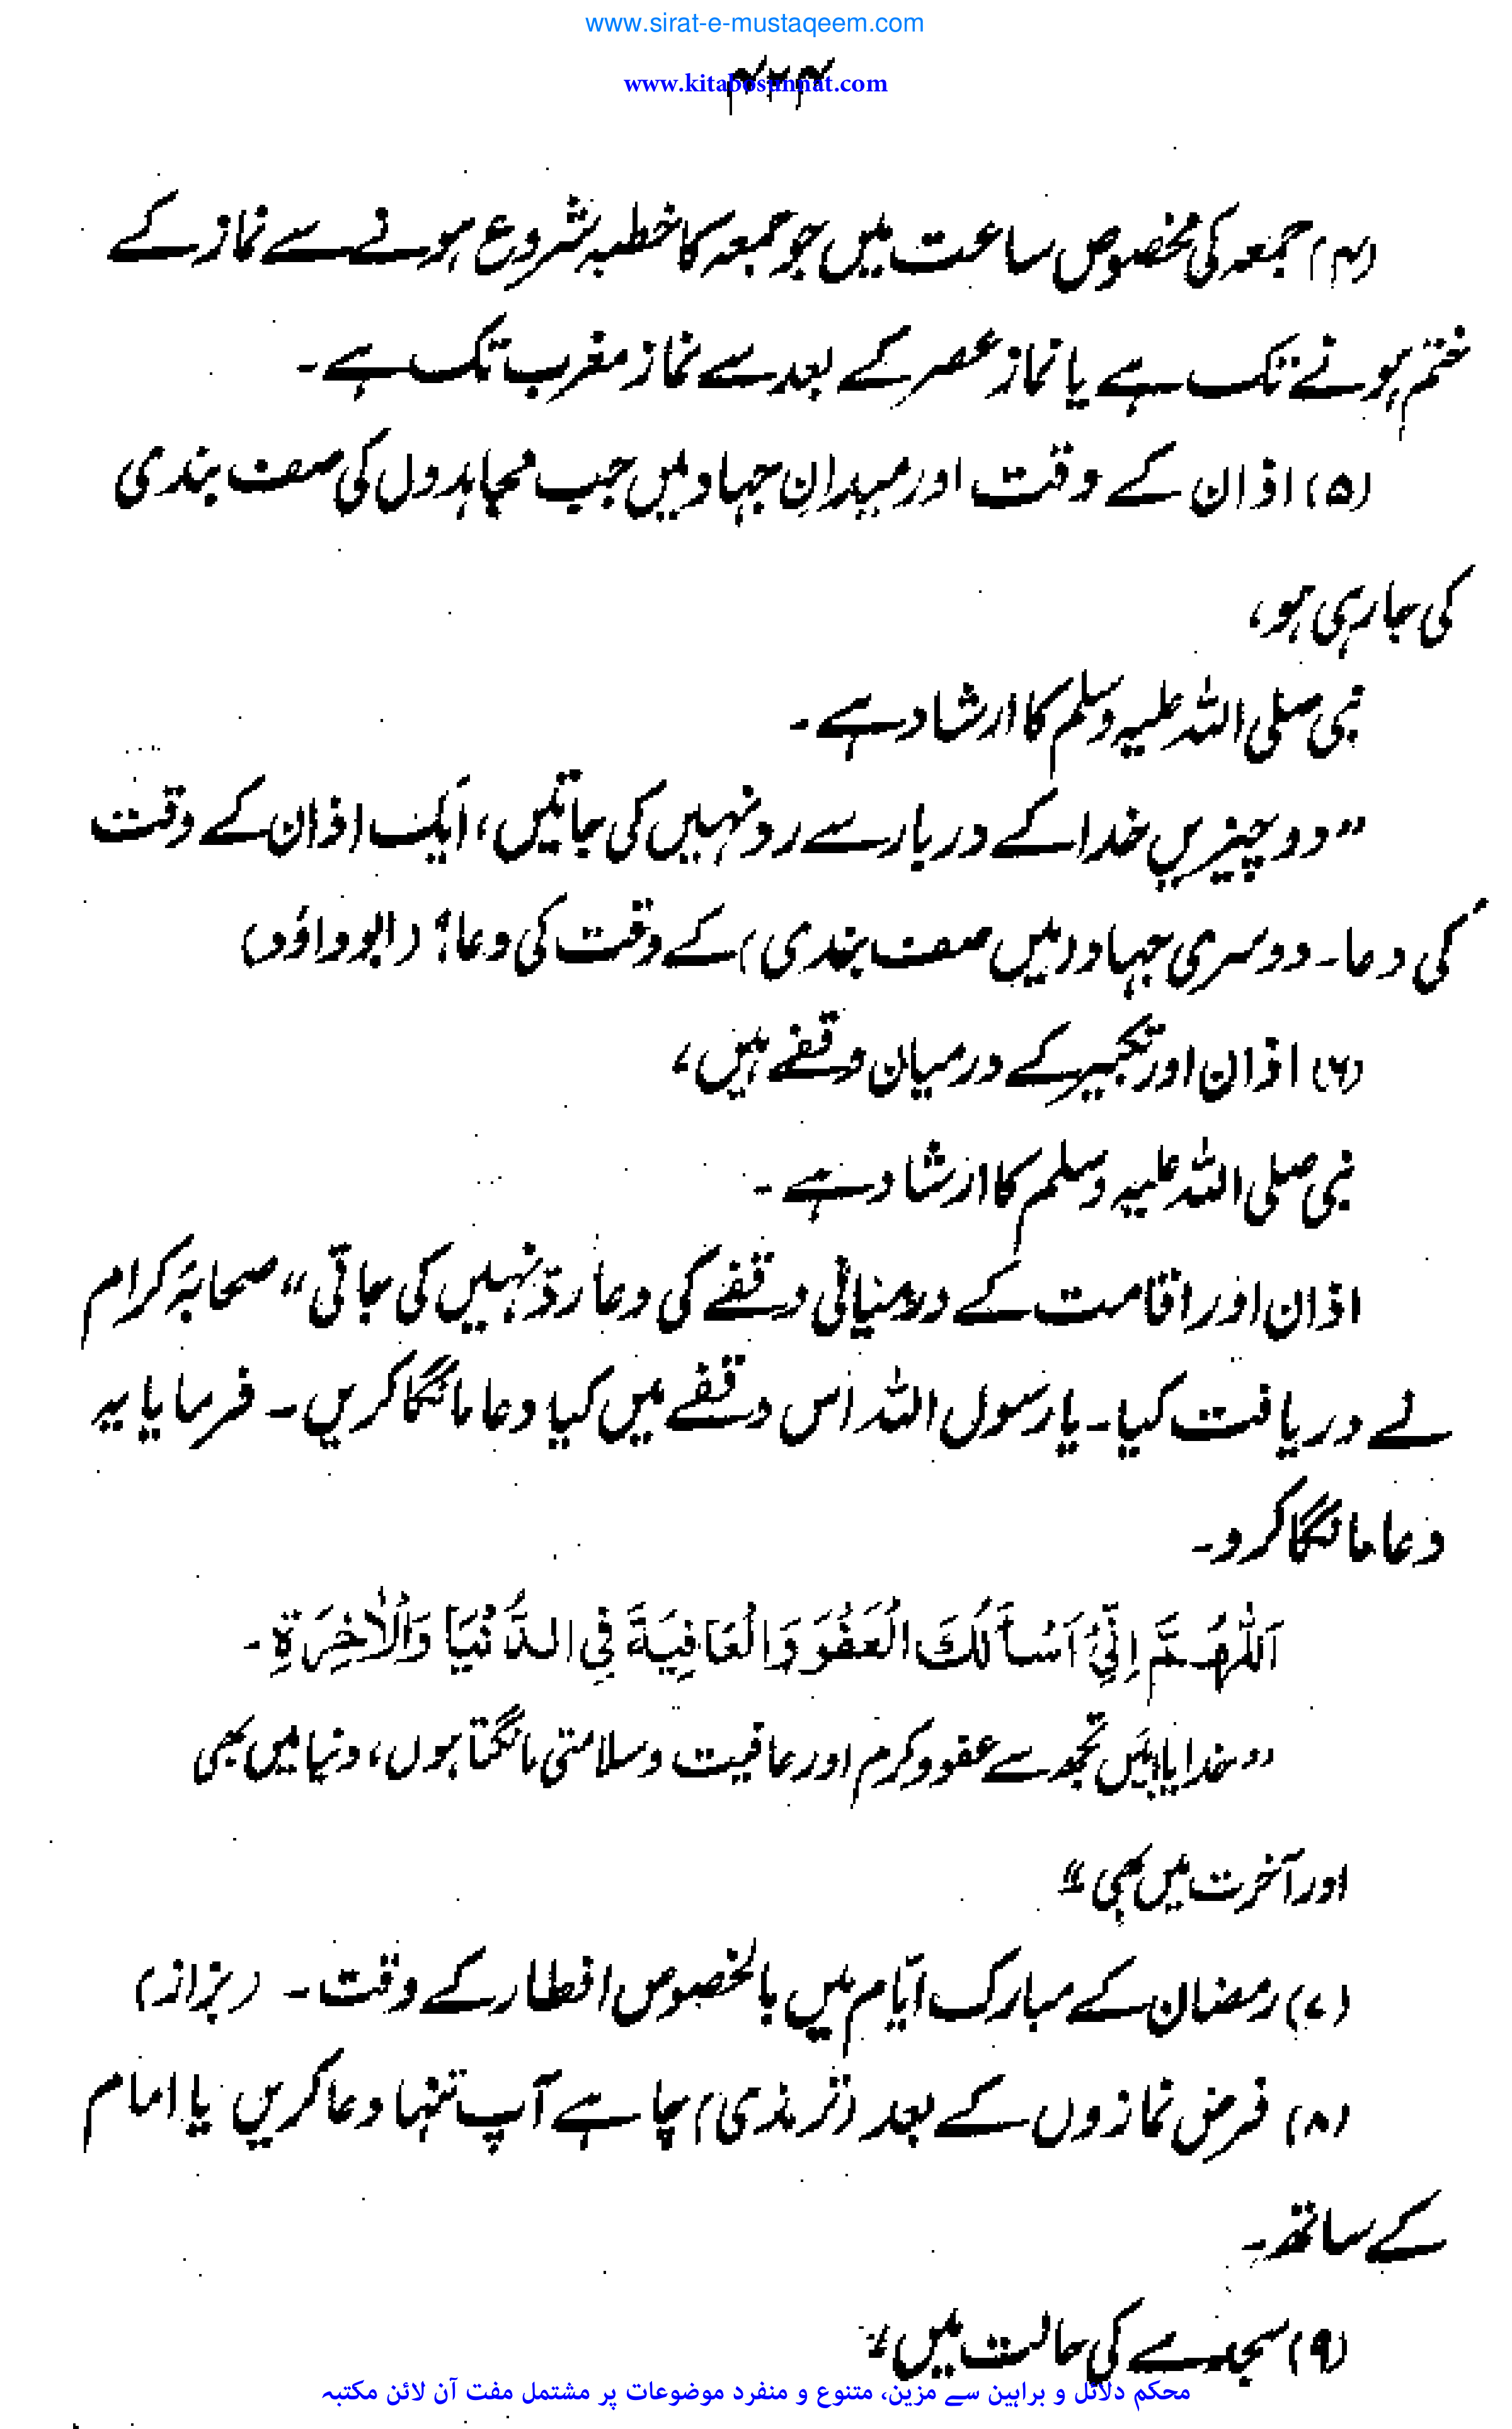 www.sirat-e-mustaqeem.com
www.kitabosunnat.com
۴۲۴
(۴) جمعہ کی مخصوص ساعت میں جو جمعہ کا خطبہ شروع ہونے سے نماز کے
ختم ہونے تک ہے یا نماز عصر کے بعد سے نماز مغرب تک ہے۔
(۵) اذان کے وقت اور میدانِ جہاد میں جب مجاہدوں کی صف بندی
کی جا رہی ہو،
نبی صلی اللہ علیہ وسلم کا ارشاد ہے۔
”دو چیزیں خدا کے دربار سے رد نہیں کی جاتیں، ایک اذان کے وقت
کی دعا۔ دوسری جہاد (میں صف بندی) کے وقت کی دعا“؛ (ابوداؤد)
(۶) اذان اور تکبیر کے درمیان وقفے میں،
نبی صلی اللہ علیہ وسلم کا ارشاد ہے۔
اذان اور اقامت کے درمیانی وقفے کی دعا ردّ نہیں کی جاتی“ صحابۂ کرام
نے دریافت کیا۔ یا رسول اللہ اس وقفے میں کیا دعا مانگا کریں۔ فرمایا یہ
دعا مانگا کرو۔
اَللّٰهُمَّ اِنِّیْ اَسْأَلُكَ الْعَفْوَ وَالْعَافِيَةَ فِی الدُّنْيَا وَالْاٰخِرَةِ۔
”خدایا! میں تجھ سے عفو و کرم اور عافیت و سلامتی مانگتا ہوں، دنیا میں بھی
اور آخرت میں بھی“
(۷) رمضان کے مبارک ایّام میں بالخصوص افطار کے وقت۔ (بزاز)
(۸) فرض نمازوں کے بعد (ترمذی) چاہے آپ تنہا دعا کریں یا امام
کے ساتھ۔
(۹) سجدے کی حالت میں،
محکم دلائل و براہین سے مزین، متنوع و منفرد موضوعات پر مشتمل مفت آن لائن مکتبہ